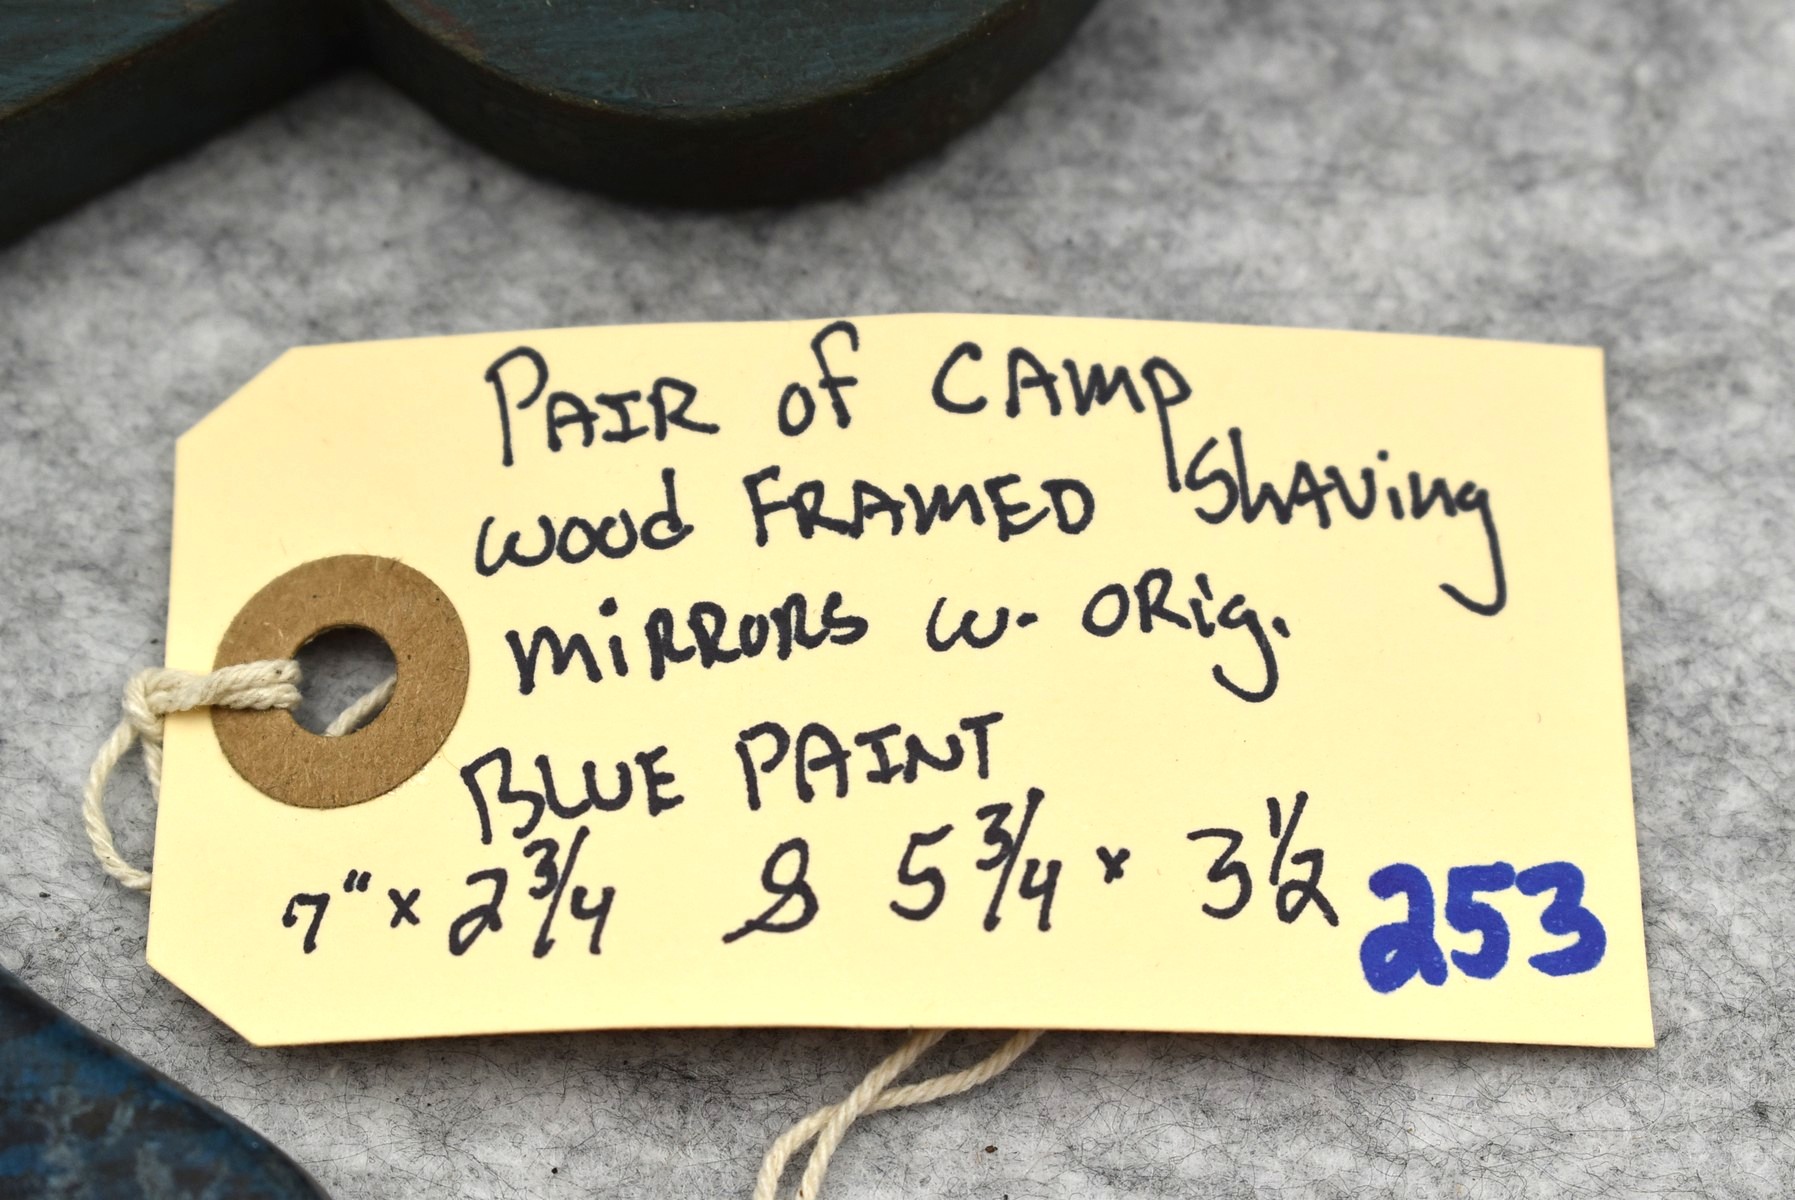 PAIR of CAMP
wood FRAMED Shaving
MiRRORS w. ORig.
BLUE PAINT
7" x 2 3/4 & 5 3/4 x 3 1/2
253